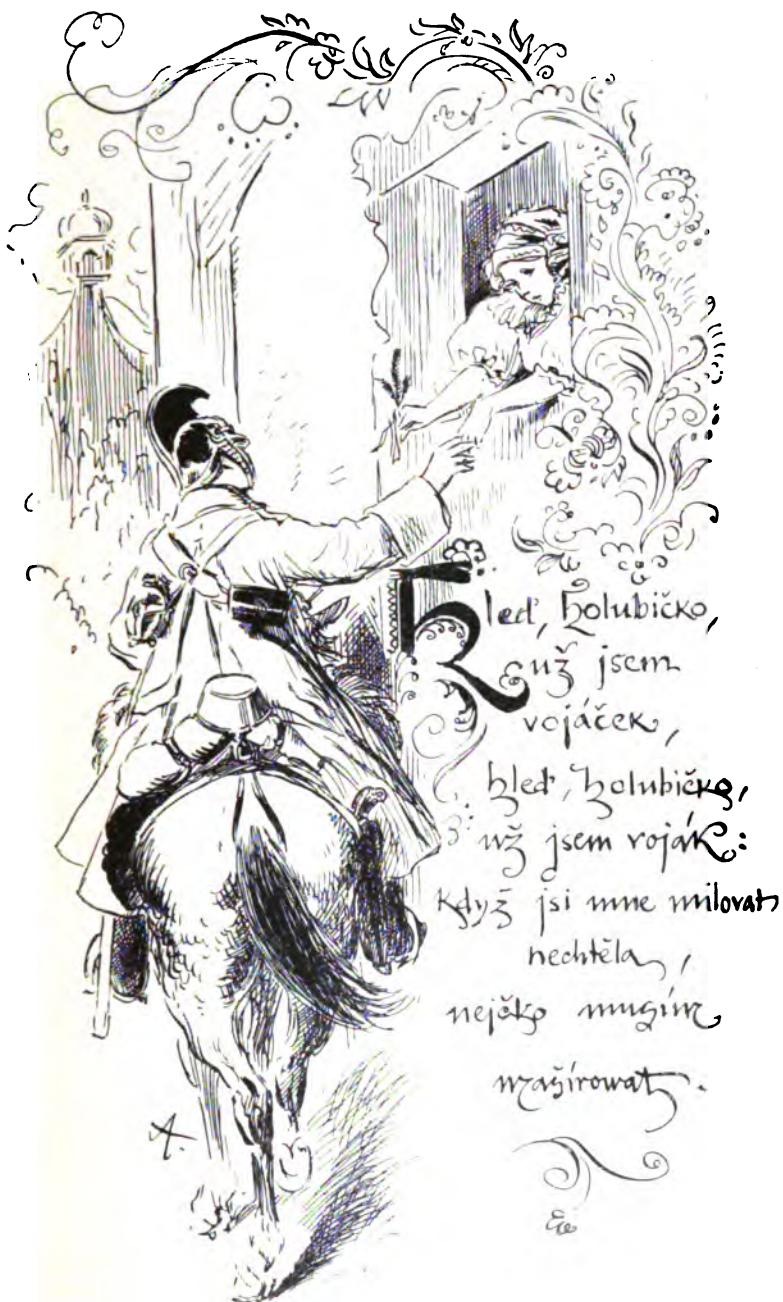 Hleď, holubičko,
už jsem
vojáček,
hleď, holubičko,
už jsem voják:
když jsi mne milovat
nechtěla,
nejčko musím
mašírowat.
A.